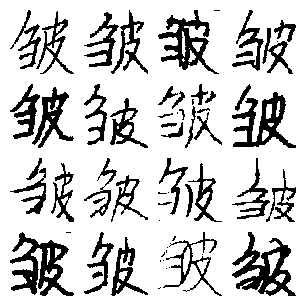 皱皱皱皱
皱皱皱皱
皱皱皱皱
皱皱皱皱